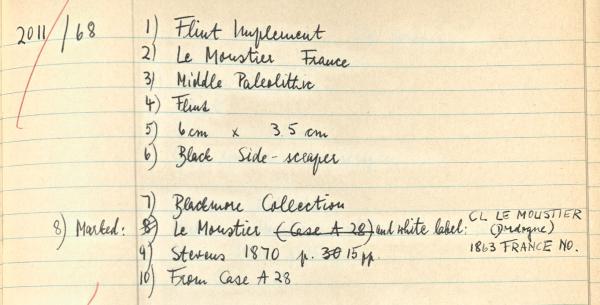 2011/68 1) Flint Implement
2) Le Moustier France
3) Middle Paleolithic
4) Flint
5) 6cm x 3.5 cm
6) Black Side-scraper
7) Blackmore Collection
8) Marked: 8) Le Moustier (Case A 28) and white label: CL LE MOUSTIER
(Dordogne)
9) Stevens 1870 p. 30 15 pp. 1863 FRANCE NO.
10) From Case A 28